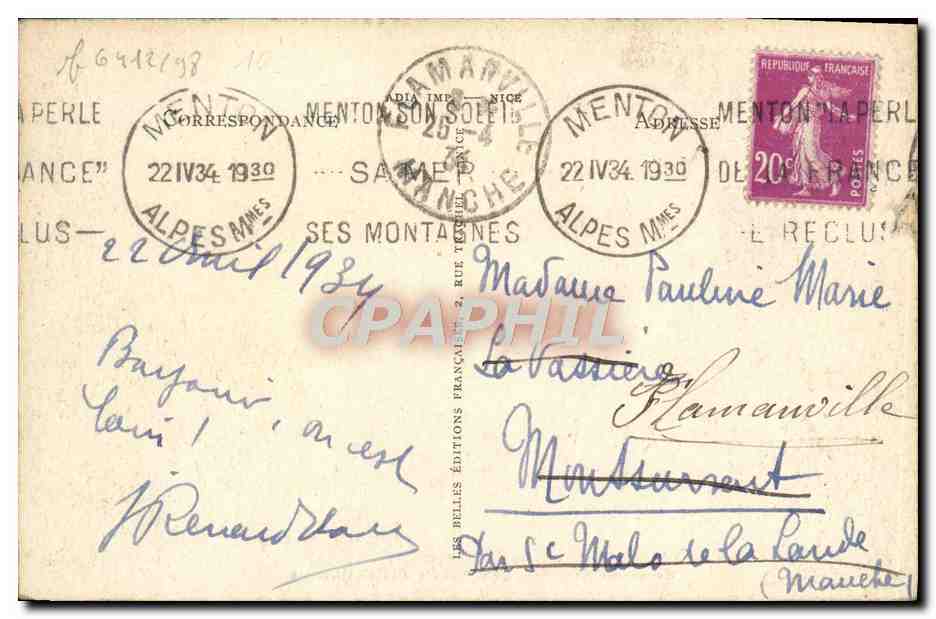 6412/98 10
FLAMANVILLE
25 -4
34
MANCHE
MENTON
22 IV 34 19 30
ALPES Mmes
MENTON
22 IV 34 19 30
ALPES Mmes
LA PERLE
ANCE"
LUS —
MENTON SON SOLEIL
SA MER
SES MONTAGNES
MENTON "LA PERLE
DE LA FRANCE
E RECLUS
CORRESPONDANCE
ADIA IMP. NICE
ADRESSE
REPUBLIQUE FRANÇAISE
20c
POSTES
LES BELLES ÉDITIONS FRANÇAISES, 2, RUE TRACHEL, NICE
CPAPHIL
22 Avril 1934
Bonjour
loin ! on est
J Renard
Madame Pauline Marie
La Vassière
Flamanville
Montsurvent
Par St Malo de la Lande
(Manche)